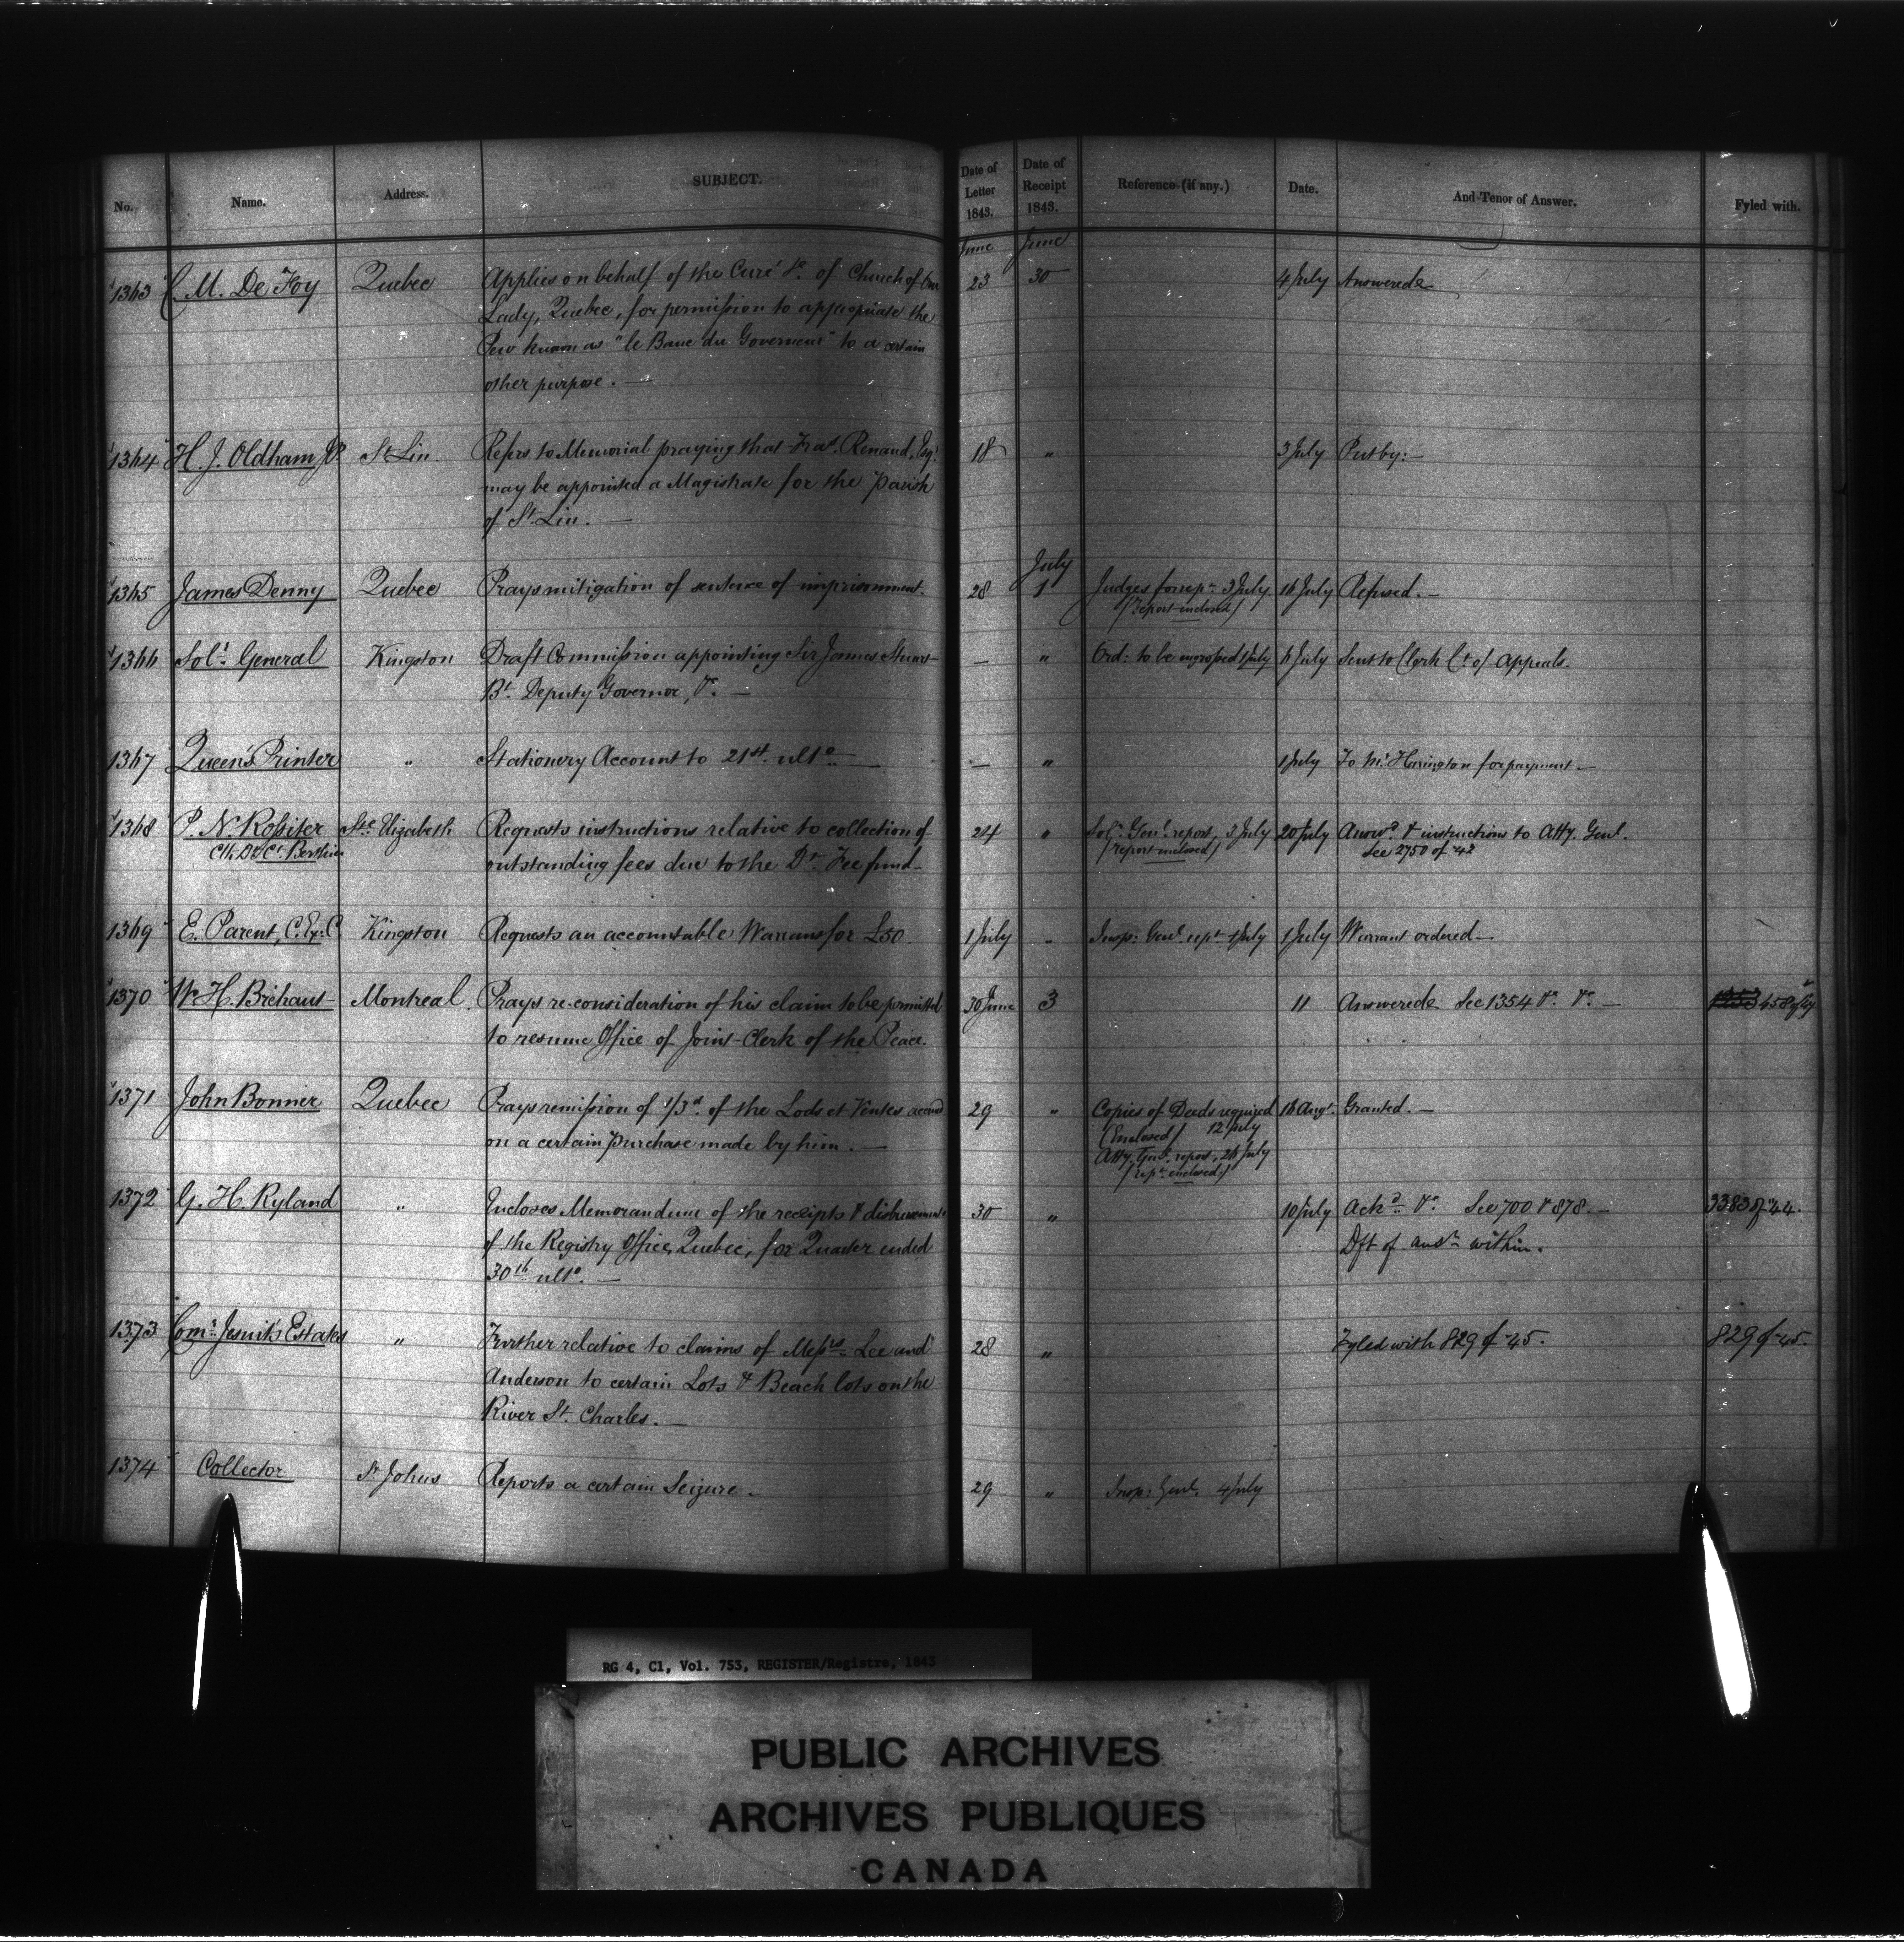 No. Name. Address. SUBJECT. Date of Letter 1843. Date of Receipt 1843. Reference (if any.) Date. And Tenor of Answer. Fyled with.
June June
1363 C. M. De Foy Quebec Applies on behalf of the Curé &c. of Church of Our 23 30 4 July Answered
Lady, Quebec, for permission to appropriate the
Pew known as "le Banc du Governeur" to a certain
other purpose. —
1364 H. J. Oldham JP. St. Lin Refers to Memorial praying that Fras. Renaud, Esqr. 18 " 3 July Put by: —
may be appointed a Magistrate for the Parish
of St. Lin. —
July
1365 James Denny Quebec Prays mitigation of sentence of imprisonment. 28 1 Judges for rept. 3 July 16 July Refused. —
(report enclosed)
1366 Solr. General Kingston Draft Commission appointing Sir James Stuart — " Ord: to be engrossed 1 July 6 July Sent to Clerk Ct. of Appeals.
Bt. Deputy Governor, &c. —
1367 Queen's Printer " Stationery Account to 21st. ulto. — — " 1 July To Mr. Harington for payment. —
1368 P. N. Rossiter Ste. Elizabeth Requests instructions relative to collection of 24 " Solr. Genl. report, 3 July 20 July Answd. & instructions to Atty. Genl.
Clk Dt. Ct. Berthier (report enclosed) See 2750 of 42
outstanding fees due to the Dt. Fee fund —
1369 E. Parent, C. Ex. C Kingston Requests an accountable Warrant for £50. 1 July " Insp: Genl. rept. 1 July 1 July Warrant ordered —
1370 W. H. Bréhaut Montreal. Prays re-consideration of his claim to be permitted 30 June 3 11 Answered See 1354 &c. &c. — 458 of
to resume Office of Joint-Clerk of the Peace.
1371 John Bonner Quebec Prays remission of 1/3d. of the Lods et Ventes accrued 29 " Copies of Deeds required 16 Augt. Granted. —
(Enclosed) 12 July
on a certain purchase made by him. —
Atty. Genl. report, 26 July
(rept. enclosed)
1372 G. H. Ryland " Encloses Memorandum of the receipts & disbursements 30 " 10 July Ackd. &c. See 700 & 878. — 3383 of 44.
of the Registry Office, Quebec, for Quarter ended Dft of answr. within.
30th ulto. —
1373 Comr. Jesuits Estates " Further relative to claims of Messrs. Lee and 28 " Fyled with 829 of 45. 829 of 45.
Anderson to certain Lots & Beach lots on the
River St. Charles. —
1374 Collector St Johns Reports a certain Seizure. — 29 " Insp: Genl. 4 July
RG 4, C1, Vol. 753, REGISTER/Registre, 1843
PUBLIC ARCHIVES
ARCHIVES PUBLIQUES
CANADA